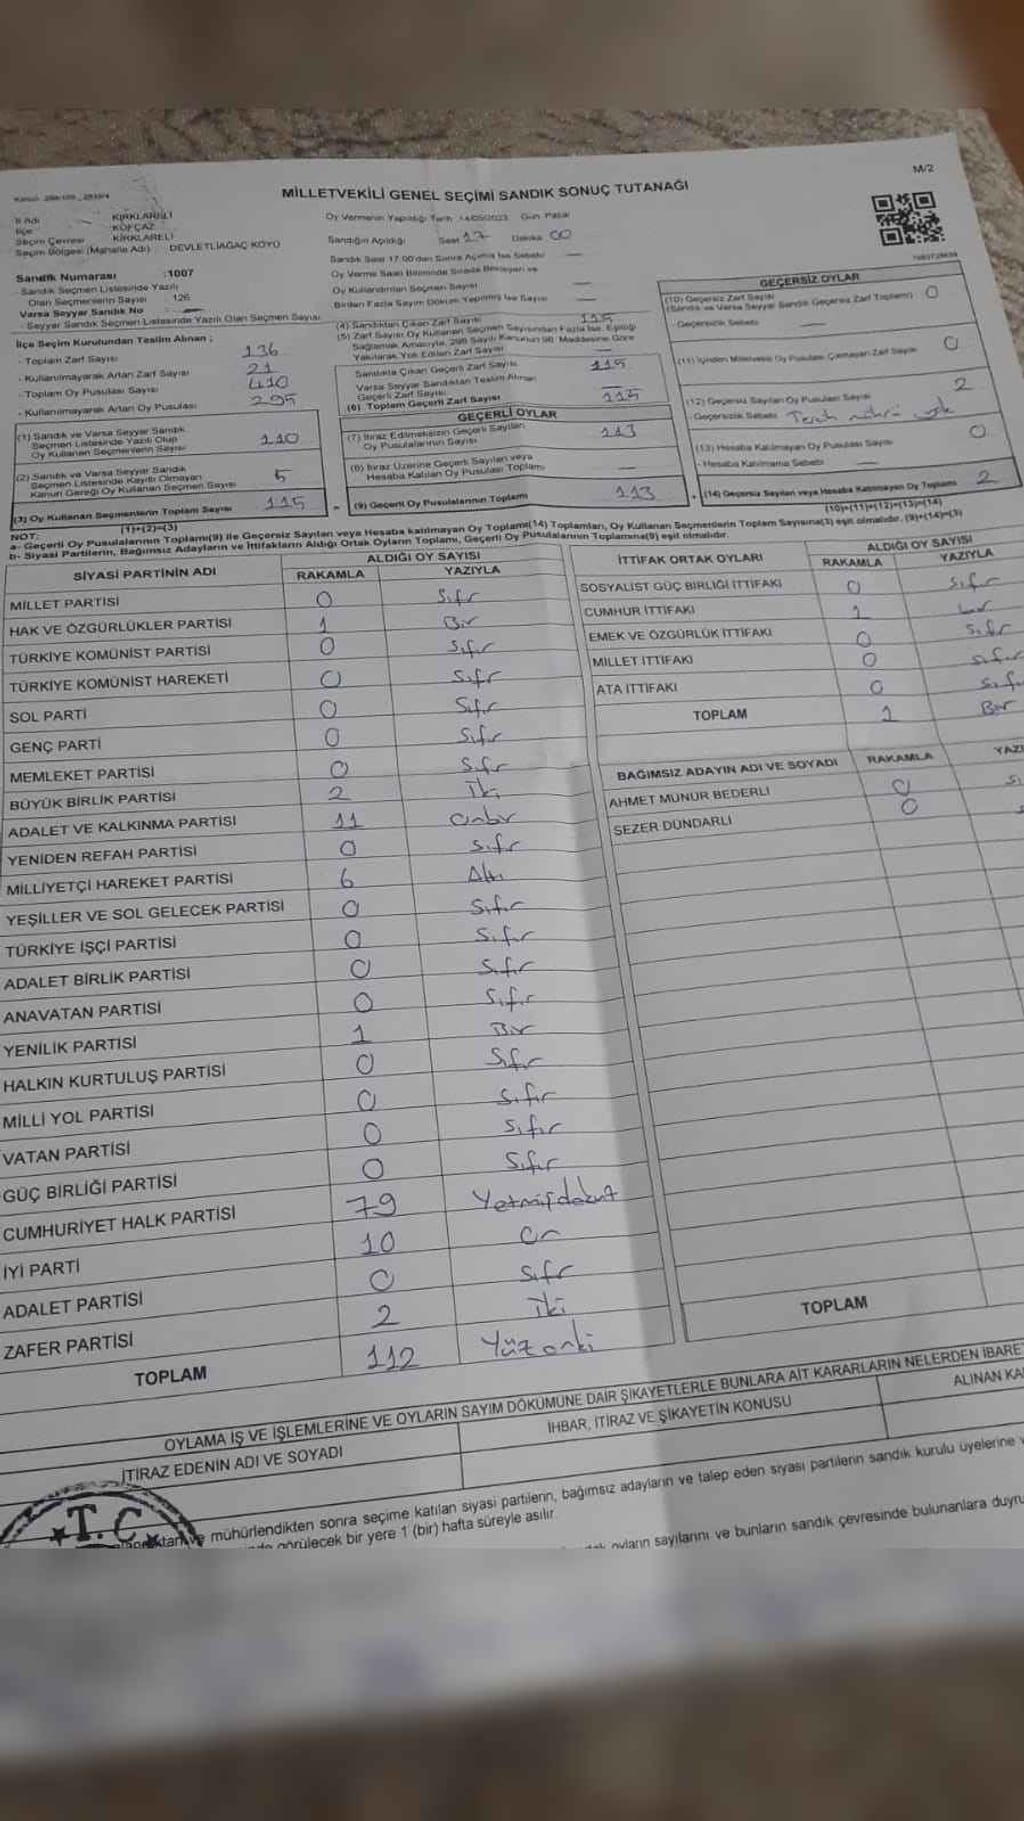 M/2
MİLLETVEKİLİ GENEL SEÇİMİ SANDIK SONUÇ TUTANAĞI
İl Adı KIRKLARELİ
İlçe KOFÇAZ
Seçim Çevresi KIRKLARELİ
Seçim Bölgesi (Mahalle Adı) DEVLETLİAĞAÇ KÖYÜ
Oy Vermenin Yapıldığı Tarih 14/05/2023 Gün Pazar
Sandığın Açıldığı Saat 17 Dakika 00
Sandık Saat 17:00'dan Sonra Açılmış İse Sebebi —
Oy Verme Saati Bitiminde Sırada Bekleyen ve
Oy Kullandırılan Seçmen Sayısı —
Birden Fazla Sayım Döküm Yapılmış İse Sayısı —
Sandık Numarası :1007
Sandık Seçmen Listesinde Yazılı
Olan Seçmenlerin Sayısı 126
Varsa Seyyar Sandık No —
- Seyyar Sandık Seçmen Listesinde Yazılı Olan Seçmen Sayısı
İlçe Seçim Kurulundan Teslim Alınan ;
- Toplam Zarf Sayısı 136
- Kullanılmayarak Artan Zarf Sayısı 21
- Toplam Oy Pusulası Sayısı 410
- Kullanılmayarak Artan Oy Pusulası 295
(1) Sandık ve Varsa Seyyar Sandık
Seçmen Listesinde Yazılı Olup
Oy Kullanan Seçmenlerin Sayısı 110
(2) Sandık ve Varsa Seyyar Sandık
Seçmen Listesinde Kayıtlı Olmayan
Kanun Gereği Oy Kullanan Seçmen Sayısı 5
(3) Oy Kullanan Seçmenlerin Toplam Sayısı 115
(1)+(2)=(3)
(4) Sandıktan Çıkan Zarf Sayısı 115
(5) Zarf Sayısı Oy Kullanan Seçmen Sayısından Fazla İse, Eşitliği
Sağlamak Amacıyla, 298 Sayılı Kanunun 98. Maddesine Göre
Yakılarak Yok Edilen Zarf Sayısı —
Sandıkta Çıkan Geçerli Zarf Sayısı 115
Varsa Seyyar Sandıktan Teslim Alınan
Geçerli Zarf Sayısı —
(6) Toplam Geçerli Zarf Sayısı 115
GEÇERLİ OYLAR
(7) İtiraz Edilmeksizin Geçerli Sayılan
Oy Pusulalarının Sayısı 113
(8) İtiraz Üzerine Geçerli Sayılan veya
Hesaba Katılan Oy Pusulası Toplamı —
(9) Geçerli Oy Pusulalarının Toplamı 113
GEÇERSİZ OYLAR
(10) Geçersiz Zarf Sayısı
(Sandık ve Varsa Seyyar Sandık Geçersiz Zarf Toplamı) 0
- Geçersizlik Sebebi —
(11) İçinden Milletvekili Oy Pusulası Çıkmayan Zarf Sayısı 0
(12) Geçersiz Sayılan Oy Pusulası Sayısı 2
Geçersizlik Sebebi Tercih mührü yok
(13) Hesaba Katılmayan Oy Pusulası Sayısı 0
- Hesaba Katılmama Sebebi
(14) Geçersiz Sayılan veya Hesaba Katılmayan Oy Toplamı 2
(10)+(11)+(12)+(13)=(14)
NOT:
a- Geçerli Oy Pusulalarının Toplamı(9) ile Geçersiz Sayılan veya Hesaba katılmayan Oy Toplamı(14) Toplamları, Oy Kullanan Seçmenlerin Toplam Sayısına(3) eşit olmalıdır. (9)+(14)=(3)
b- Siyasi Partilerin, Bağımsız Adayların ve İttifakların Aldığı Ortak Oyların Toplamı, Geçerli Oy Pusulalarının Toplamına(9) eşit olmalıdır.
SİYASİ PARTİNİN ADI ALDIĞI OY SAYISI
RAKAMLA YAZIYLA
MİLLET PARTİSİ 0 Sıfır
HAK VE ÖZGÜRLÜKLER PARTİSİ 1 Bir
TÜRKİYE KOMÜNİST PARTİSİ 0 Sıfır
TÜRKİYE KOMÜNİST HAREKETİ 0 Sıfır
SOL PARTİ 0 Sıfır
GENÇ PARTİ 0 Sıfır
MEMLEKET PARTİSİ 0 Sıfır
BÜYÜK BİRLİK PARTİSİ 2 İki
ADALET VE KALKINMA PARTİSİ 11 Onbir
YENİDEN REFAH PARTİSİ 0 Sıfır
MİLLİYETÇİ HAREKET PARTİSİ 6 Altı
YEŞİLLER VE SOL GELECEK PARTİSİ 0 Sıfır
TÜRKİYE İŞÇİ PARTİSİ 0 Sıfır
ADALET BİRLİK PARTİSİ 0 Sıfır
ANAVATAN PARTİSİ 0 Sıfır
YENİLİK PARTİSİ 1 Bir
HALKIN KURTULUŞ PARTİSİ 0 Sıfır
MİLLİ YOL PARTİSİ 0 Sıfır
VATAN PARTİSİ 0 Sıfır
GÜÇ BİRLİĞİ PARTİSİ 0 Sıfır
CUMHURİYET HALK PARTİSİ 79 Yetmişdokuz
İYİ PARTİ 10 On
ADALET PARTİSİ 0 Sıfır
ZAFER PARTİSİ 2 İki
TOPLAM 112 Yüz oniki
İTTİFAK ORTAK OYLARI ALDIĞI OY SAYISI
RAKAMLA YAZIYLA
SOSYALİST GÜÇ BİRLİĞİ İTTİFAKI 0 Sıfır
CUMHUR İTTİFAKI 1 bir
EMEK VE ÖZGÜRLÜK İTTİFAKI 0 Sıfır
MİLLET İTTİFAKI 0 Sıfır
ATA İTTİFAKI 0 Sıfı
TOPLAM 1 Bir
BAĞIMSIZ ADAYIN ADI VE SOYADI RAKAMLA YAZI
AHMET MÜNÜR BEDERLİ 0 Sı
SEZER DÜNDARLI 0 S
TOPLAM
OYLAMA İŞ VE İŞLEMLERİNE VE OYLARIN SAYIM DÖKÜMÜNE DAİR ŞİKAYETLERLE BUNLARA AİT KARARLARIN NELERDEN İBARE
İTİRAZ EDENİN ADI VE SOYADI İHBAR, İTİRAZ VE ŞİKAYETİN KONUSU ALINAN KA
T.C.
ve mühürlendikten sonra seçime katılan siyasi partilerin, bağımsız adayların ve talep eden siyasi partilerin sandık kurulu üyelerine v
görülecek bir yere 1 (bir) hafta süreyle asılır.
oyların sayılarını ve bunların sandık çevresinde bulunanlara duyru